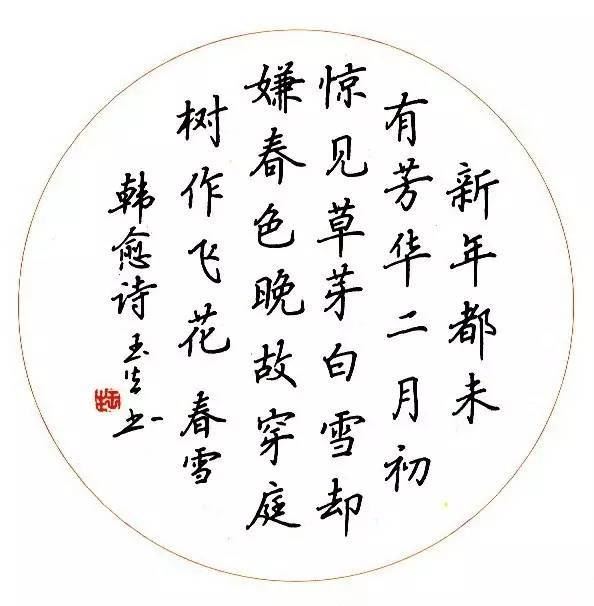 新年都未
有芳华二月初
惊见草芽白雪却
嫌春色晚故穿庭
树作飞花 春雪
韩愈诗 玉生书